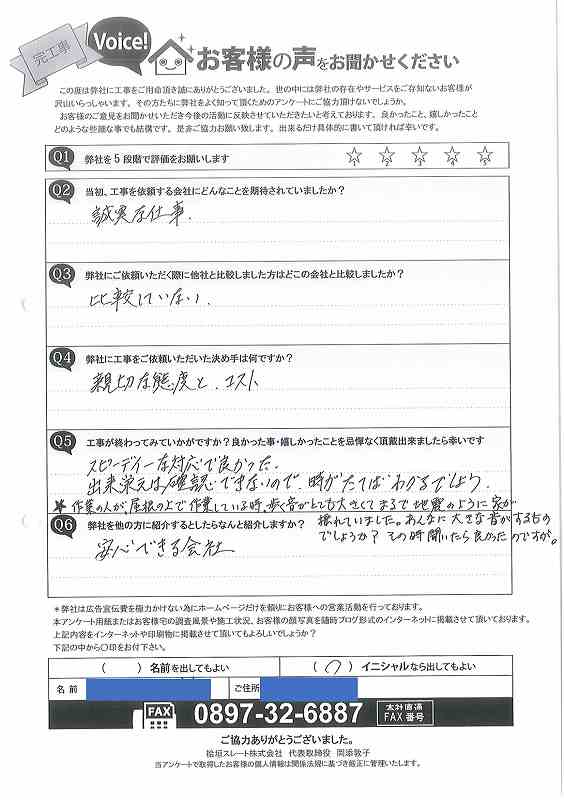 完工事
Voice!
お客様の声をお聞かせください
この度は弊社に工事をご用命頂き誠にありがとうございました。世の中には弊社の存在やサービスをご存知ないお客様が
沢山いらっしゃいます。その方たちに弊社をよく知って頂くためのアンケートにご協力頂けないでしょうか。
お客様のご意見をお聞かせいただき今後の活動に反映させていただきたいと考えております。良かったこと、嬉しかったこと
どのような些細な事でも結構です。是非ご協力お願い致します。出来るだけ具体的に書いて頂ければ幸いです。
Q1 弊社を5段階で評価をお願いします
1 2 3 4 5
Q2 当初、工事を依頼する会社にどんなことを期待されていましたか?
誠実な仕事.
Q3 弊社にご依頼いただく際に他社と比較しました方はどこの会社と比較しましたか?
比較していない.
Q4 弊社に工事をご依頼いただいた決め手は何ですか?
親切な態度と、コスト
Q5 工事が終わってみていかがですか?良かった事・嬉しかったことを忌憚なく頂戴出来ましたら幸いです
スピーディーな対応で良かった.
出来栄えは確認できないので、時がたてばわかるでしょう.
*作業の人が、屋根の上で作業している時、歩く音がとても大きくてまるで地震のように家が
揺れていました。あんなに大きな音がするもの
でしょうか?その時聞いたら良かったのですが。
Q6 弊社を他の方に紹介するとしたらなんと紹介しますか?
安心できる会社
*弊社は広告宣伝費を極力かけない為にホームページだけを頼りにお客様への営業活動を行っております。
本アンケート用紙またはお客様宅の調査風景や施工状況、お客様の顔写真を随時ブログ形式のインターネットに掲載させて頂いております。
上記内容をインターネットや印刷物に掲載させて頂いてもよろしいでしょうか?
下記の中から○印をお付下さい。
( ) 名前を出してもよい
(○) イニシャルなら出してもよい
名前
ご住所
FAX 0897-32-6887 本社直通 FAX番号
ご協力ありがとうございました。
桧垣スレート株式会社 代表取締役 岡添敦子
当アンケートで取得したお客様の個人情報は関係法規に基づき厳正に管理いたします。